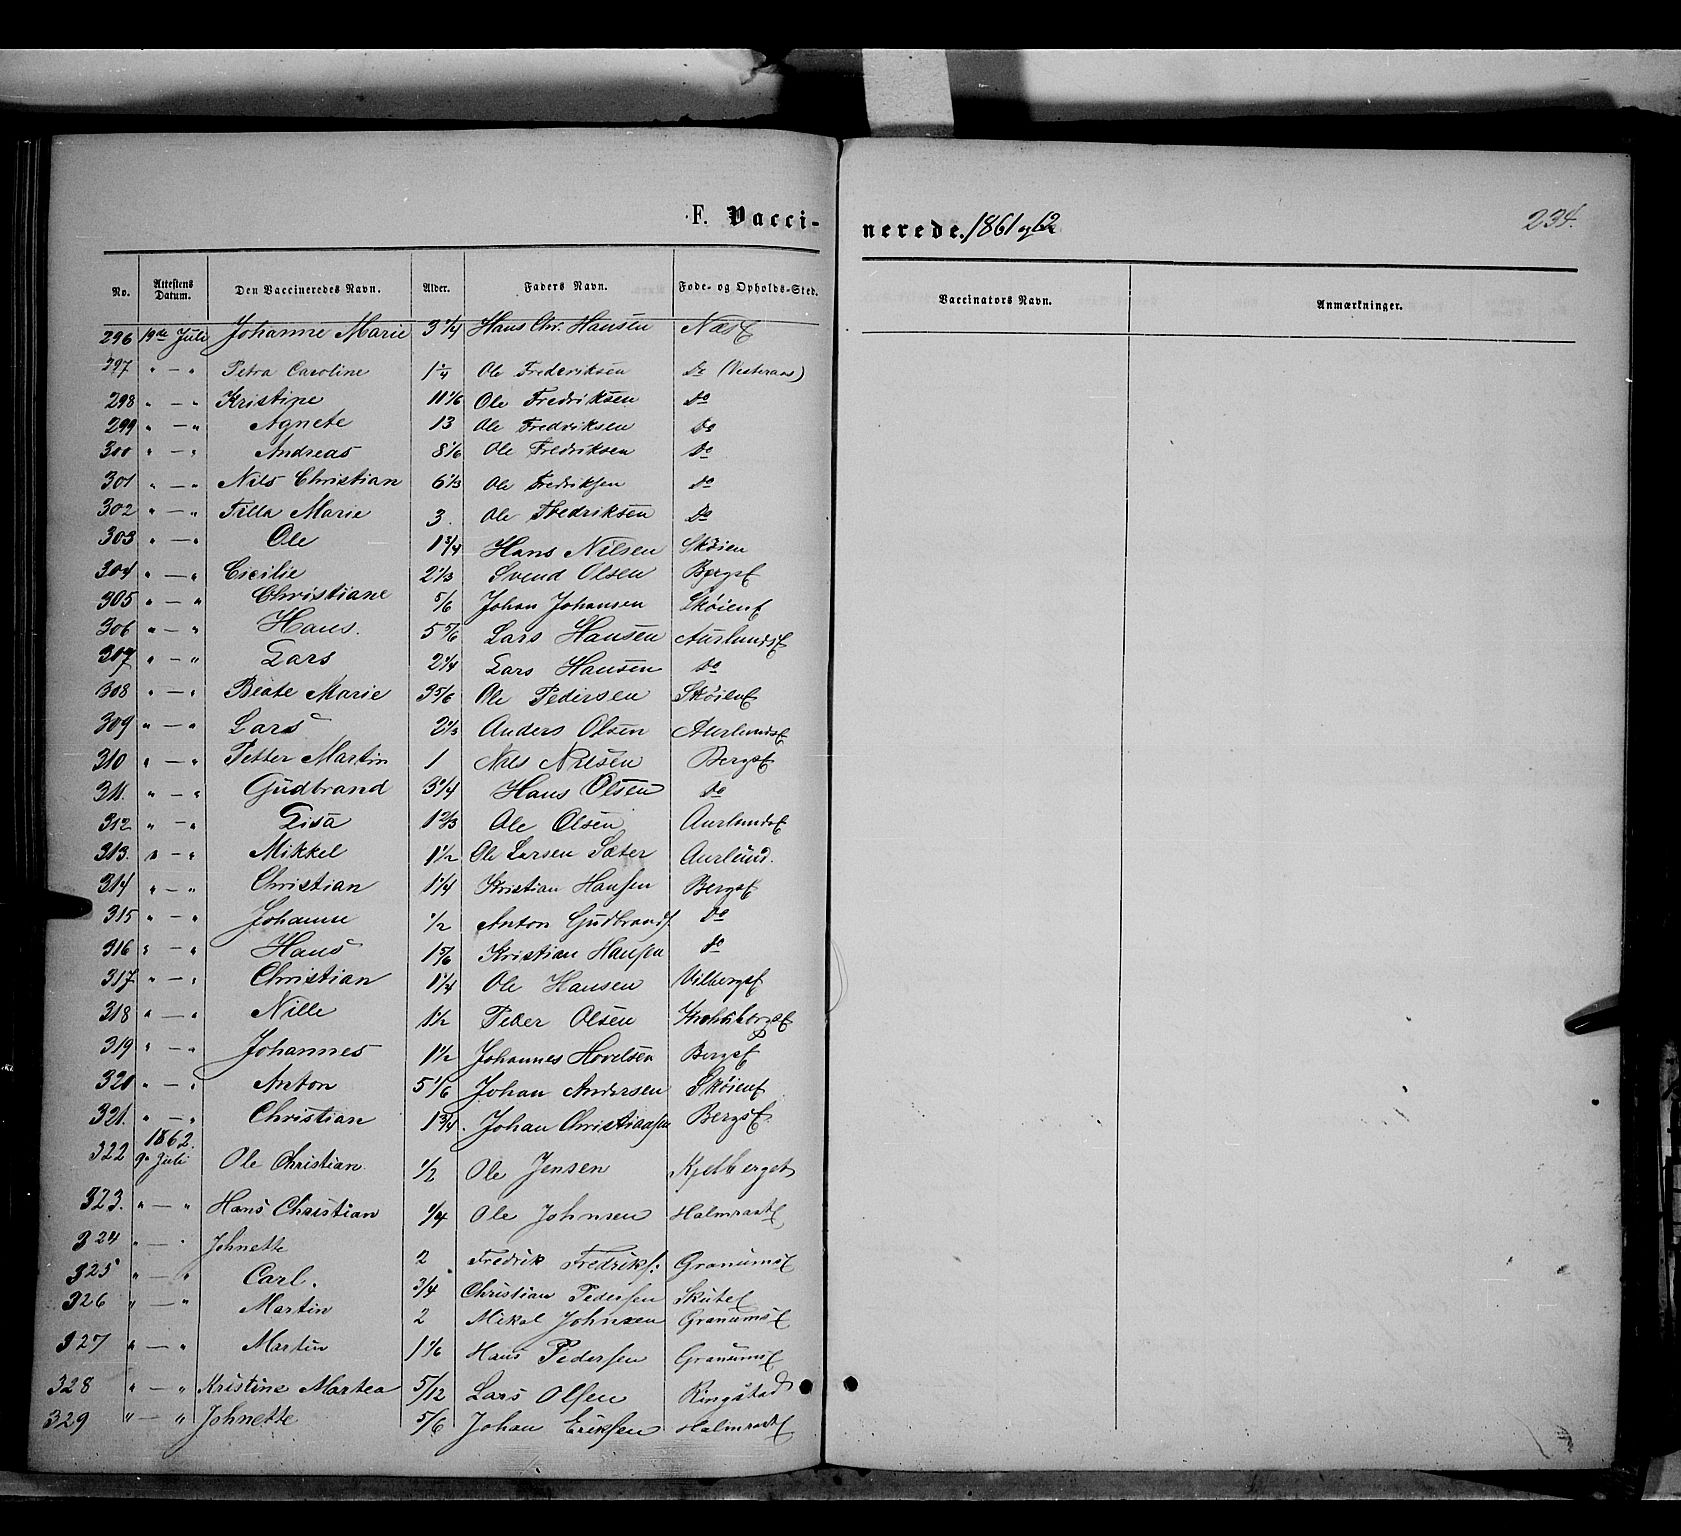 F. Vacci-nerede. 1861 og 62
234.
No. Attestens Datum. Den Vaccineredes Navn. Alder. Faders Navn. Føde- og Opholds-Sted. Vaccinators Navn. Anmærkninger.
296 19de Juli Johanne Marie 3 1/4 Hans Chr. Hansen Næs
297 " — " Petra Caroline 1 1/4 Ole Frederiksen Do (Vesteraas)
298 " — " Kristine 11 1/6 Ole Fredriksen Do
299 " — " Agnete 13 Ole Fredriksen Do
300 " — " Andreas 8 1/6 Ole Fredriksen Do
301 " — " Nils Christian 6 1/3 Ole Fredriksen Do
302 " — " Tilla Marie 3. Ole Fredriksen Do
303 " — " Ole 1 3/4 Hans Nilsen Skøien
304 " — " Cicilie 2 1/3 Svend Olsen BergsE
305 " — " Christiane 5/6 Johan Johansen SkøienE
306 " — " Hans. 5 5/6 Lars Hansen AurlundsE
307 " — " Lars 2 1/4 Lars Hansen Do
308 " — " Beate Marie 3 5/6 Ole Pedersen SkøienE
309 " — " Lars 2 1/3 Anders Olsen AurlundsE
310 " — " Petter Martin 1 Nils Nilsen BergsE
311. " — " Gudbrand 3 1/4 Hans Olsen Do
312 " — " Lisa 1 2/3 Ole Olsen AurlundsE
313. " — " Mikkel 1 1/2 Ole Larsen Sæter Aurlund.
314 " — " Christian 1 1/4 Kristian Hansen BergsE
315 " — " Johanne 1/2 Anton Gudbrands. Do
316 " — " Hans 1 5/6 Kristian Hansen Do
317 " — " Christian 1 1/4 Ole Hansen VilbergsE
318 " — " Nille 1 1/2 Peder Olsen
319 " — " Johannes 1 1/2 Johannes Hovelsen BergsE
320 " — " Anton 5 1/6 Johan Andersen SkøienE
321. " — " Christian 1 3/4. Johan Christiansen BergsE
1862.
322 9de Juli Ole Christian. 1/2 Ole Jensen Kjelberget
323. " — " Hans Christian 1/4 Ole Johnsen HalmraatE
324 " — " Johnette 2 Fredrik Fredriks: GranumsE
325 " — " Carl. 3/4 Christian Pedersen SkuteE
326 " — " Martin 2 Mikal Johnsen GranumsE
327 " — " Martin 1 1/6 Hans Pedersen GranumsE
328 " — " Kristine Martea 5/12 Lars Olsen Ringstad
329 " — " Johnette 5/6 Johan Eriksen HalmraatE